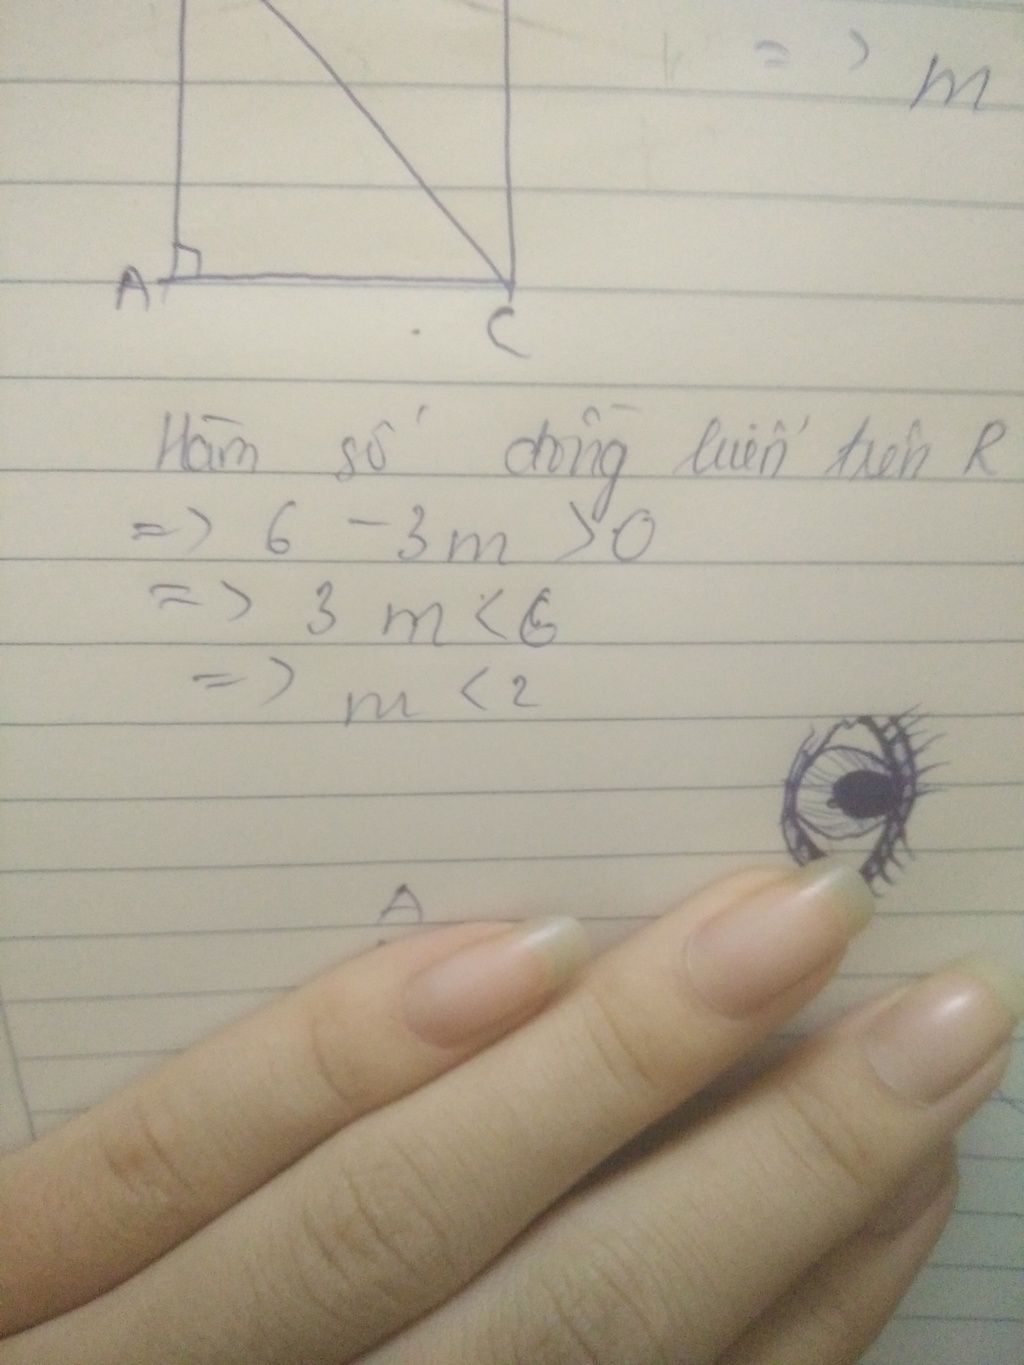 => m
A
C
Hàm số đồng biến trên R
=> 6 - 3m > 0
=> 3m < 6
=> m < 2
A